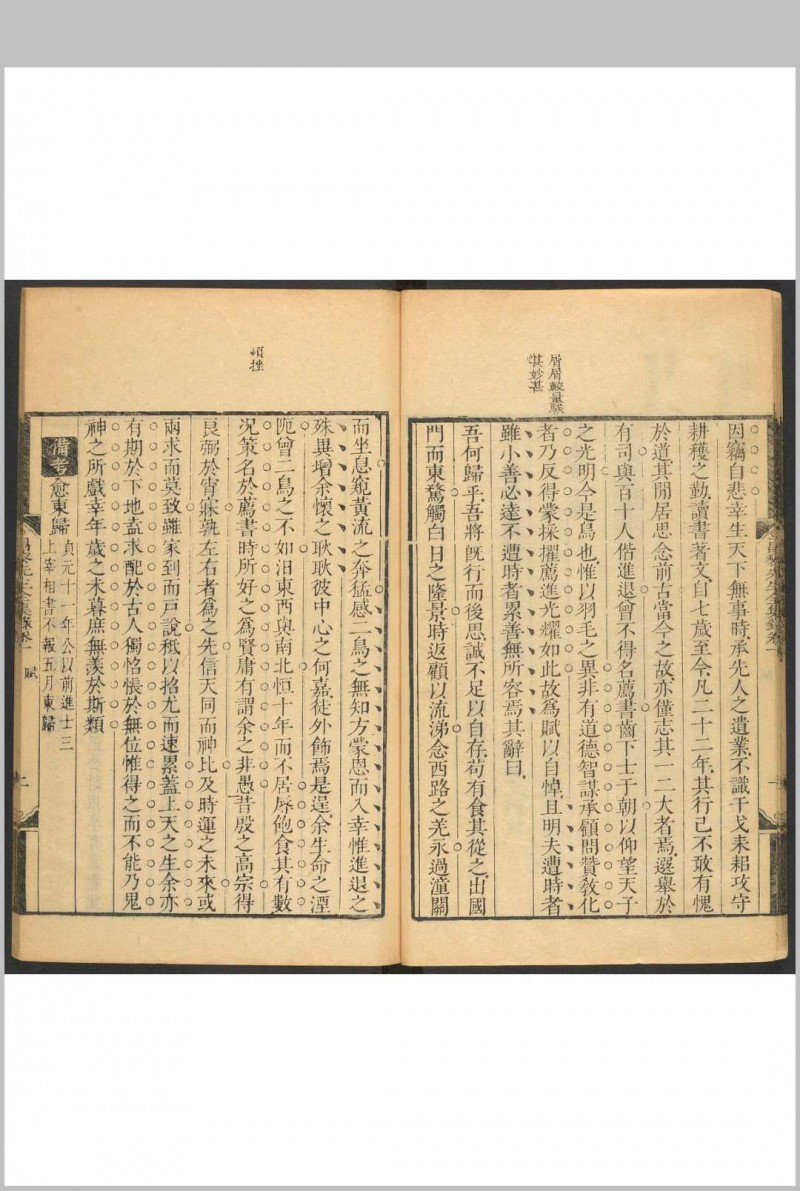 屑屑較量發
其妙甚
因竊自悲幸生天下無事時承先人之遺業不識干戈耒耜攻守
耕穫之勤讀書著文自七歲至今凡二十二年其行己不敢有愧
於道其閒居思念前古當今之故亦僅志其一二大者焉選舉於
有司與百十人偕進退曾不得名薦書齒下士于朝以仰望天子
之光明今是鳥也惟以羽毛之異非有道德智謀承顧問贊敎化
者乃反得蒙採擢薦進光耀如此故爲賦以自悼且明夫遭時者
雖小善必達不遭時者累善無所容焉其辭曰
吾何歸乎吾將旣行而後思誠不足以自存苟有食其從之出國
門而東騖觸白日之隆景時返顧以流涕念西路之羌永過潼關
頓挫
而坐息窺黃流之奔猛感二鳥之無知方蒙恩而入幸惟進退之
殊異增余懷之耿耿彼中心之何嘉徒外飾焉是逞余生命之湮
阨曾二鳥之不如汨東西與南北恒十年而不居辱飽食其有數
況策名於薦書時所好之爲賢庸有謂余之非愚昔殷之高宗得
良弼於宵寐孰左右者爲之先信天同而神比及時運之未來或
兩求而莫致雖家到而戶說秪以招尤而速累蓋上天之生余亦
有期於下地盍求配於古人獨怊悵於無位惟得之而不能乃鬼
神之所戲幸年歲之未暮庶無羨於斯類
備考 愈東歸 貞元十一年公以前進士三
上宰相書不報五月東歸
賦